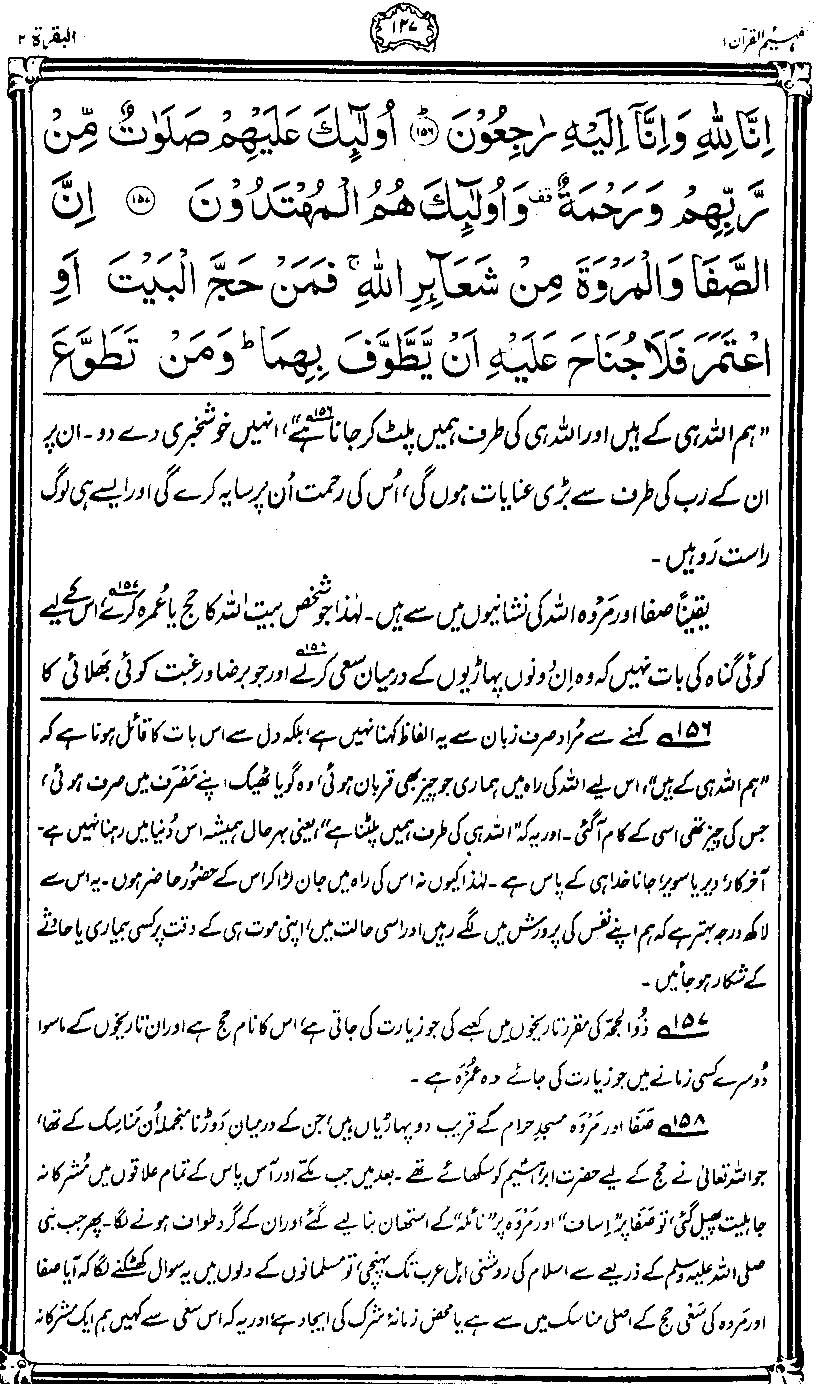 تفہیم القرآن ۱
۱۲۷
البقرۃ ۲
اِنَّا لِلّٰهِ وَاِنَّاۤ اِلَيْهِ رٰجِعُوْنَ ؕ﴿۱۵۶﴾ اُولٰٓئِكَ عَلَيْهِمْ صَلَوٰتٌ مِّنْ
رَّبِّهِمْ وَرَحْمَةٌ ۟ وَاُولٰٓئِكَ هُمُ الْمُهْتَدُوْنَ ﴿۱۵۷﴾ اِنَّ
الصَّفَا وَالْمَرْوَةَ مِنْ شَعَآئِرِ اللّٰهِ ۚ فَمَنْ حَجَّ الْبَيْتَ اَوِ
اعْتَمَرَ فَلَا جُنَاحَ عَلَيْهِ اَنْ يَّطَّوَّفَ بِهِمَا ؕ وَمَنْ تَطَوَّعَ
”ہم اللہ ہی کے ہیں اور اللہ ہی کی طرف ہمیں پلٹ کر جانا ہے۱۵۶“، انہیں خوشخبری دے دو۔ ان پر
ان کے رب کی طرف سے بڑی عنایات ہوں گی، اُس کی رحمت اُن پر سایہ کرے گی اور ایسے ہی لوگ
راست رَو ہیں۔
یقیناً صفا اور مَرْوَہ اللہ کی نشانیوں میں سے ہیں۔ لہٰذا جو شخص بیت اللہ کا حج یا عُمرہ کرے۱۵۷، اس کے لیے
کوئی گناہ کی بات نہیں کہ وہ اِن دونوں پہاڑیوں کے درمیان سعی کرلے۱۵۸ اور جو برضا ورغبت کوئی بھَلائی کا
۱۵۶ کہنے سے مُراد صرف زبان سے یہ الفاظ کہنا نہیں ہے، بلکہ دل سے اس بات کا قائل ہونا ہے کہ
”ہم اللہ ہی کے ہیں“، اس لیے اللہ کی راہ میں ہماری جو چیز بھی قربان ہوئی، وہ گویا ٹھیک اپنے مَصْرَف میں صرف ہوئی،
جس کی چیز تھی اسی کے کام آگئی۔ اور یہ کہ ”اللہ ہی کی طرف ہمیں پلٹنا ہے“، یعنی بہرحال ہمیشہ اس دُنیا میں رہنا نہیں ہے۔
آخرکار، دیر یا سویر، جانا خدا ہی کے پاس ہے۔ لہٰذا کیوں نہ اس کی راہ میں جان لڑا کر اس کے حضُور حاضر ہوں۔ یہ اس سے
لاکھ درجہ بہتر ہے کہ ہم اپنے نفس کی پرورش میں لگے رہیں اور اسی حالت میں، اپنی موت ہی کے وقت پر کسی بیماری یا حادثے
کے شکار ہوجائیں۔
۱۵۷ ذُوالحجّہ کی مقرر تاریخوں میں کعبے کی جو زیارت کی جاتی ہے، اس کا نام حج ہے اور ان تاریخوں کے ماسوا
دُوسرے کسی زمانے میں جو زیارت کی جائے وہ عُمْرَہ ہے۔
۱۵۸ صَفَا اور مَرْوَہ مسجدِ حرام کے قریب دو پہاڑیاں ہیں، جن کے درمیان دَوڑنا منجملہ اُن مَناسِک کے تھا،
جو اللہ تعالیٰ نے حج کے لیے حضرت ابراہیم کو سکھائے تھے۔ بعد میں جب مکّے اور آس پاس کے تمام علاقوں میں مُشرکانہ
جاہلیت پھیل گئی، تو صَفَا پر ”اِساف“ اور مَرْوَہ پر ”نائلہ“ کے استھان بنا لیے گئے اور ان کے گرد طواف ہونے لگا۔ پھر جب نبی
صلی اللہ علیہ وسلم کے ذریعے سے اسلام کی روشنی اہلِ عرب تک پہنچی، تو مسلمانوں کے دلوں میں یہ سوال کھٹکنے لگا کہ آیا صفا
اور مَروہ کی سَعْی حج کے اصلی مناسک میں سے ہے یا محض زمانۂ شرک کی ایجاد ہے، اور یہ کہ اس سَعْی سے کہیں ہم ایک مشرکانہ